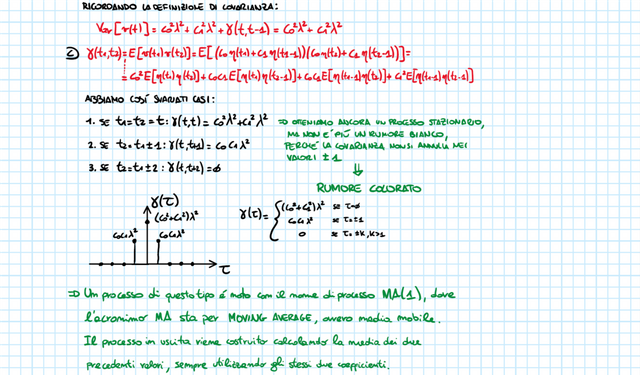 RICORDANDO LA DEFINIZIONE DI COVARIANZA:
Var[v(t)] = C₀²λ² + C₁²λ² + γ(t,t-1) = C₀²λ² + C₁²λ²
c) γ(t₁,t₂) = E[v(t₁)v(t₂)] = E[(C₀η(t₁)+C₁η(t₁-1))(C₀η(t₂)+C₁η(t₂-1))] =
= C₀²E[η(t₁)η(t₂)] + C₀C₁E[η(t₁)η(t₂-1)] + C₀C₁E[η(t₁-1)η(t₂)] + C₁²E[η(t₁-1)η(t₂-1)]
ABBIAMO COSÌ SVARIATI CASI:
1. SE t₁=t₂=t: γ(t,t) = C₀²λ²+C₁²λ² ⇒ OTTENIAMO ANCORA UN PROCESSO STAZIONARIO,
MA NON È PIÙ UN RUMORE BIANCO,
2. SE t₂=t₁±1: γ(t,t±1) = C₀C₁λ² PERCHÉ LA COVARIANZA NON SI ANNULLA NEI
VALORI ±1
3. SE t₂=t₁±2: γ(t,t±2) = ∅
⇓
RUMORE COLORATO
γ(τ)
(C₀²+C₁²)λ²
C₀C₁λ² C₀C₁λ²
τ
γ(τ) = { (C₀²+C₁²)λ² se τ=∅
C₀C₁λ² se τ=±1
0 se τ=±k, k>1
⇒ Un processo di questo tipo è noto con il nome di processo MA(1), dove
l'acronimo MA sta per MOVING AVERAGE, ovvero media mobile.
Il processo in uscita viene costruito calcolando la media dei due
precedenti valori, sempre utilizzando gli stessi due coefficienti.